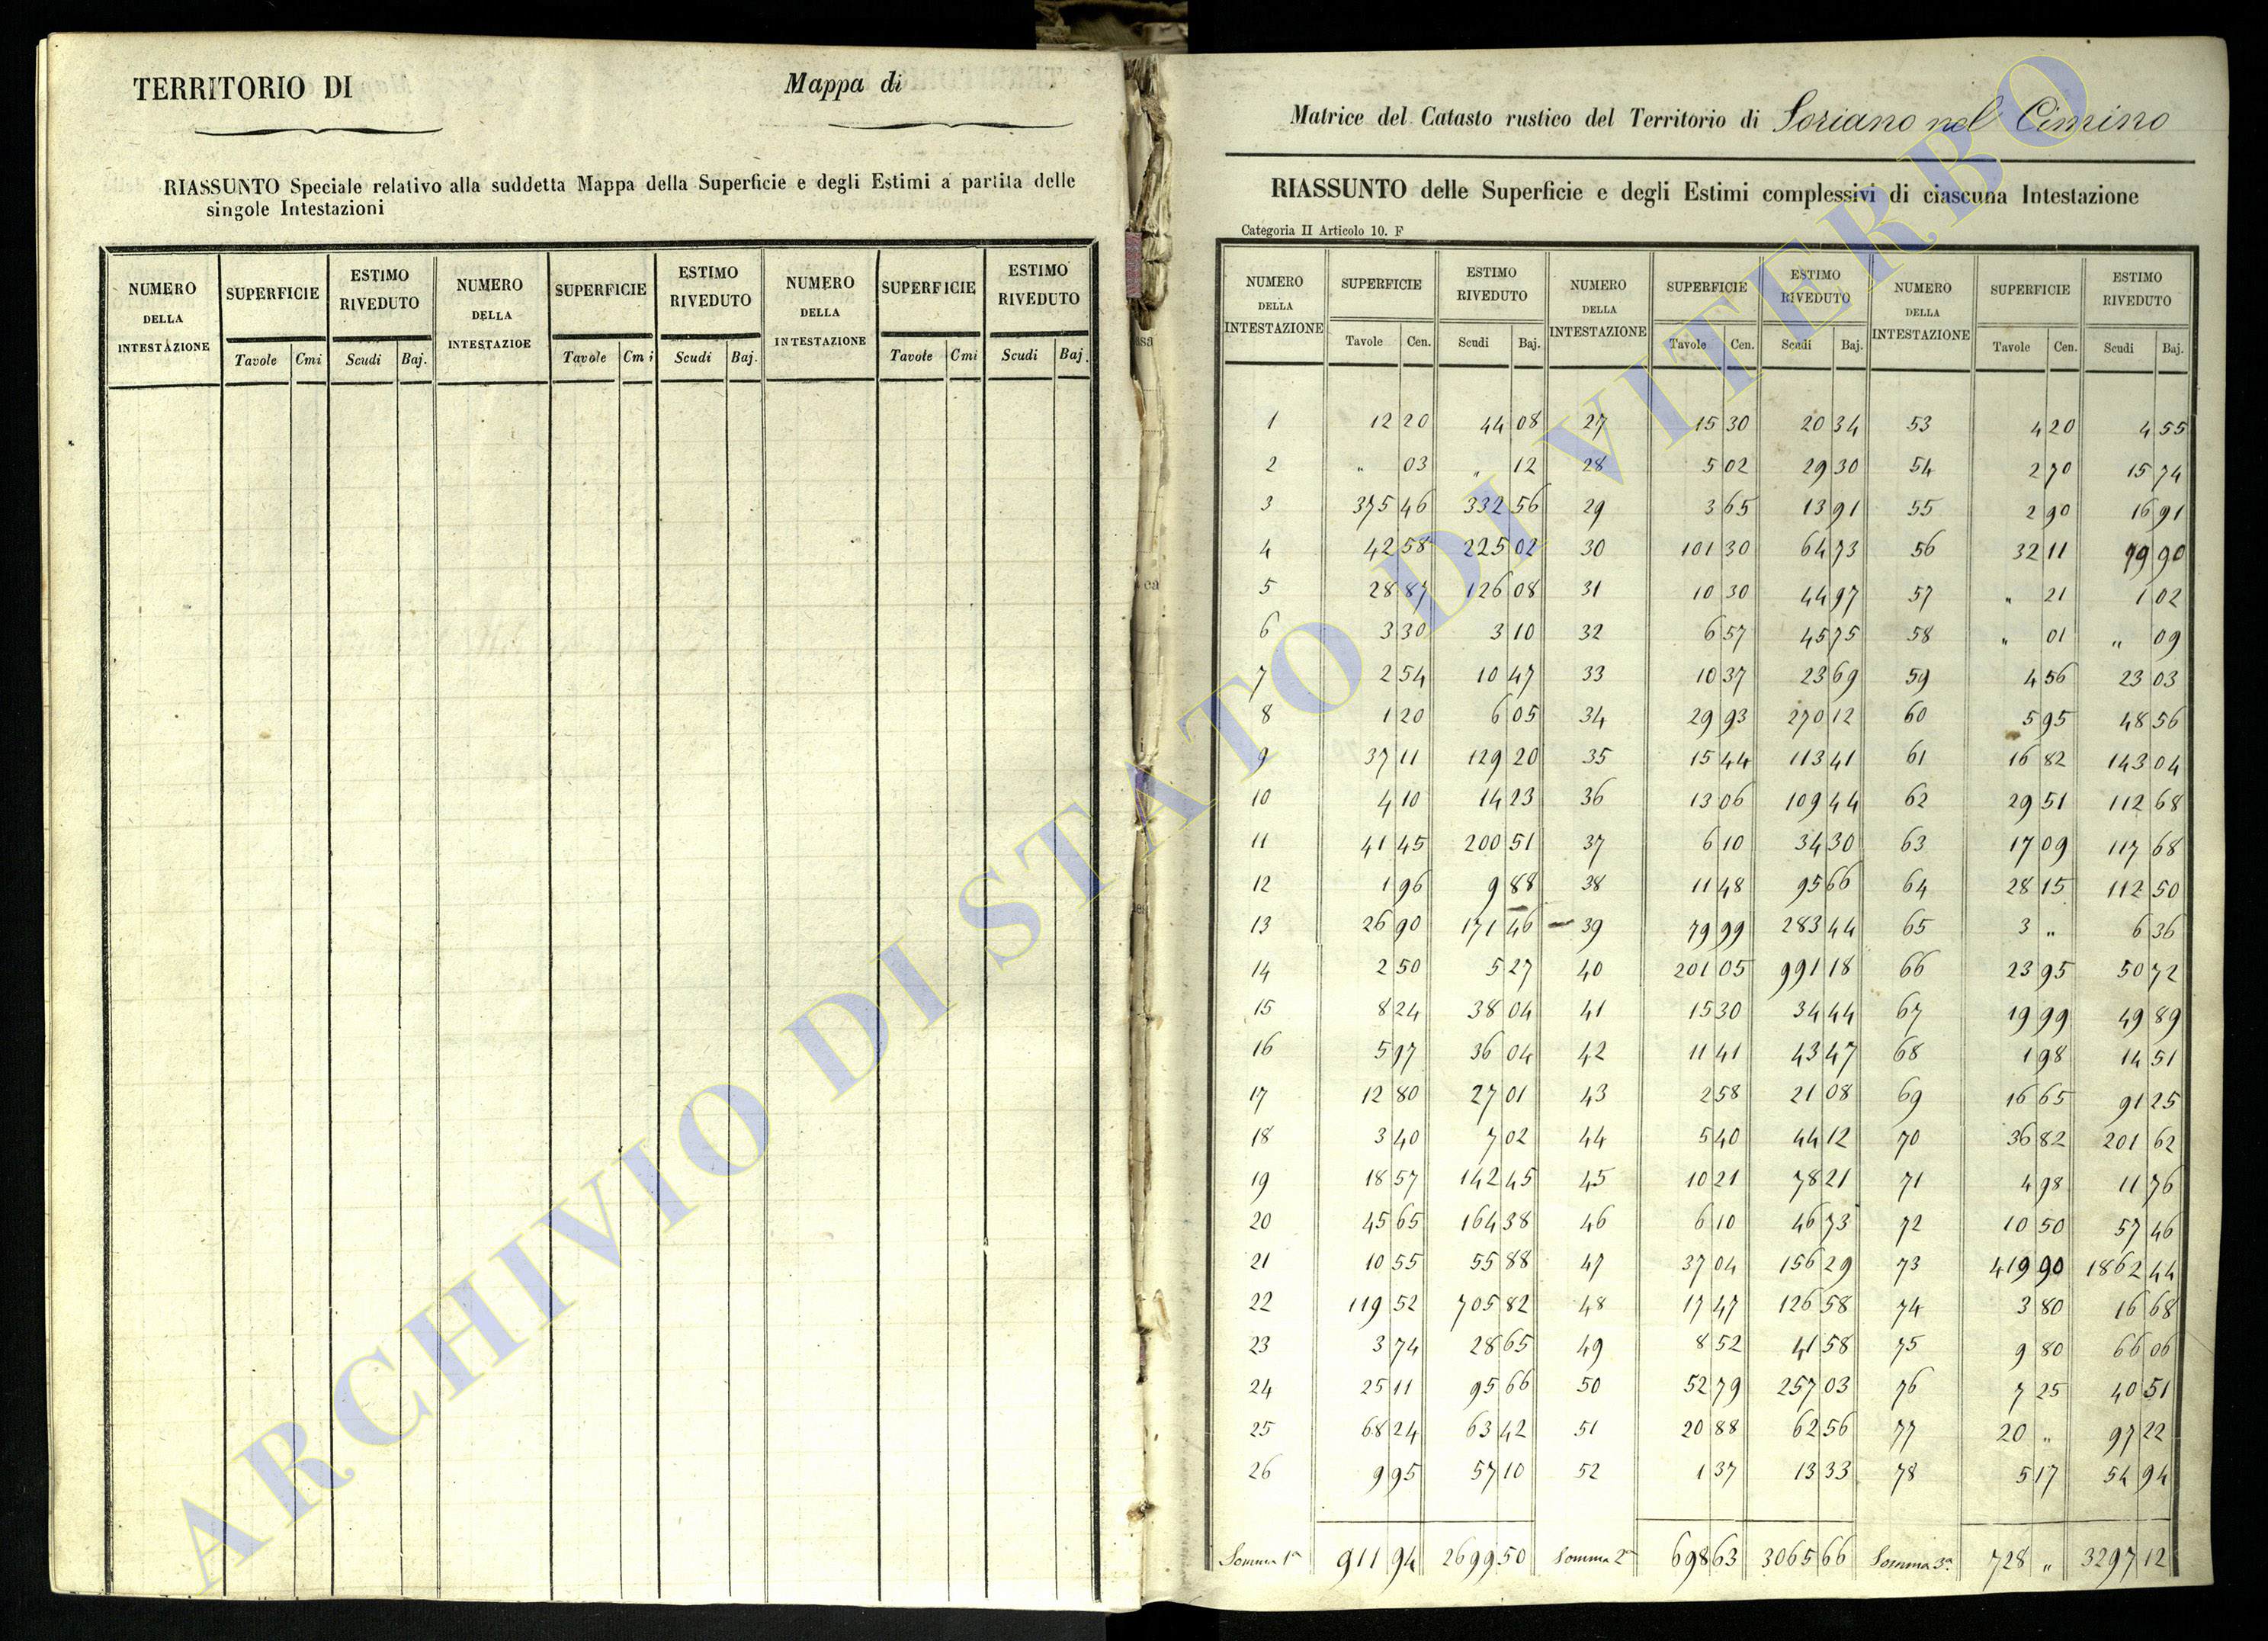 TERRITORIO DI
Mappa di
RIASSUNTO Speciale relativo alla suddetta Mappa della Superficie e degli Estimi a partita delle
singole Intestazioni
NUMERO DELLA INTESTAZIONE SUPERFICIE ESTIMO RIVEDUTO NUMERO DELLA INTESTAZIOE SUPERFICIE ESTIMO RIVEDUTO NUMERO DELLA INTESTAZIONE SUPERFICIE ESTIMO RIVEDUTO
Tavole Cmi Scudi Baj. Tavole Cmi Scudi Baj. Tavole Cmi Scudi Baj.
Matrice del Catasto rustico del Territorio di Soriano nel Cimino
RIASSUNTO delle Superficie e degli Estimi complessivi di ciascuna Intestazione
Categoria II Articolo 10. F
NUMERO DELLA INTESTAZIONE SUPERFICIE ESTIMO RIVEDUTO NUMERO DELLA INTESTAZIONE SUPERFICIE ESTIMO RIVEDUTO NUMERO DELLA INTESTAZIONE SUPERFICIE ESTIMO RIVEDUTO
Tavole Cen. Scudi Baj. Tavole Cen. Scudi Baj. Tavole Cen. Scudi Baj.
1 12 20 44 08 27 15 30 20 34 53 4 20 4 55
2 " 03 " 12 28 5 02 29 30 54 2 70 15 74
3 375 46 332 56 29 3 65 13 91 55 2 90 16 91
4 42 58 225 02 30 101 30 64 73 56 32 11 79 90
5 28 87 126 08 31 10 30 44 97 57 " 21 1 02
6 3 30 3 10 32 6 57 45 75 58 " 01 " 09
7 2 54 10 47 33 10 37 23 69 59 4 56 23 03
8 1 20 6 05 34 29 93 270 12 60 5 95 48 56
9 37 11 129 20 35 15 44 113 41 61 16 82 143 04
10 4 10 14 23 36 13 06 109 44 62 29 51 112 68
11 41 45 200 51 37 6 10 34 30 63 17 09 117 68
12 1 96 9 88 38 11 48 95 66 64 28 15 112 50
13 26 90 171 46 39 79 99 283 44 65 3 " 6 36
14 2 50 5 27 40 201 05 991 18 66 23 95 50 72
15 8 24 38 04 41 15 30 34 44 67 19 99 49 89
16 5 97 36 04 42 11 41 43 47 68 1 98 14 51
17 12 80 27 01 43 2 58 21 08 69 16 65 91 25
18 3 40 7 02 44 5 40 44 12 70 36 82 201 62
19 18 57 142 45 45 10 21 78 21 71 4 98 11 76
20 45 65 164 38 46 6 10 46 73 72 10 50 57 46
21 10 55 55 88 47 37 04 156 29 73 419 90 1862 44
22 119 52 705 82 48 17 47 126 58 74 3 80 16 68
23 3 74 28 65 49 8 52 41 58 75 9 80 66 06
24 25 11 95 66 50 52 79 257 03 76 7 25 40 51
25 68 24 63 42 51 20 88 62 56 77 20 " 97 22
26 9 95 57 10 52 1 37 13 33 78 5 17 54 94
Somma 1ª 911 94 2699 50 Somma 2ª 698 63 3065 66 Somma 3ª 728 " 3297 12
ARCHIVIO DI STATO DI VITERBO